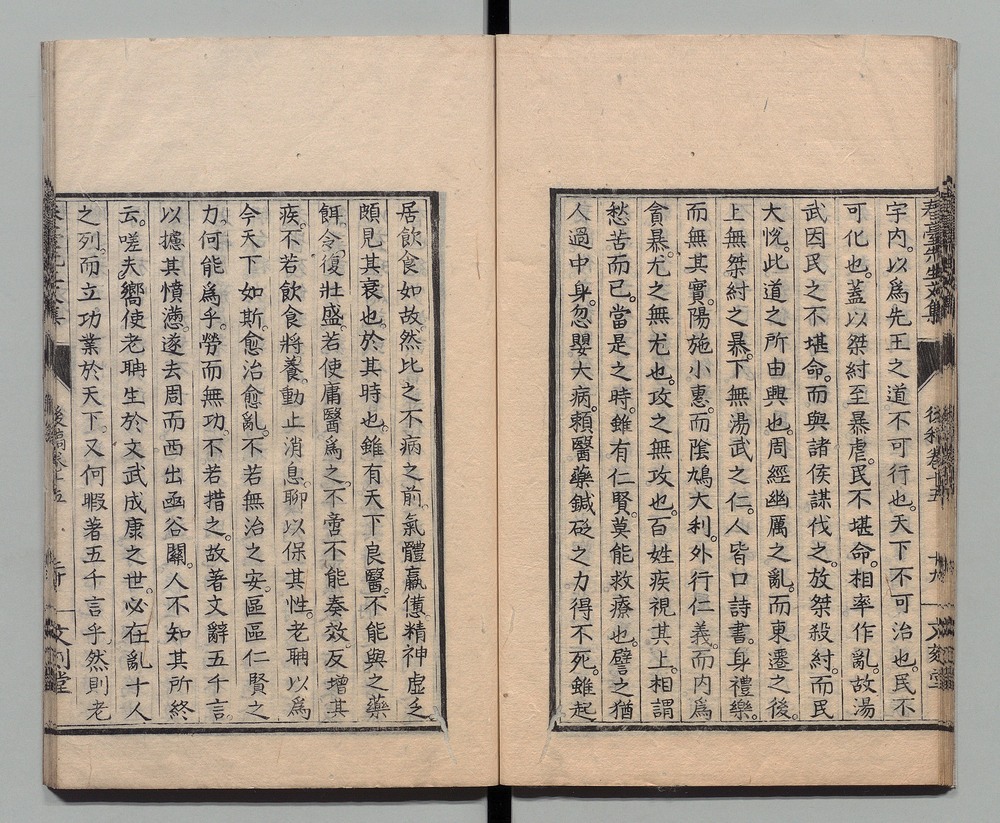 宇内。以爲先王之道不可行也。天下不可治也。民不
可化也。蓋以桀紂至暴虐。民不堪命。相率作亂。故湯
武因民之不堪命。而與諸侯謀伐之。放桀殺紂。而民
大悅。此道之所由興也。周經幽厲之亂。而東遷之後。
上無桀紂之暴。下無湯武之仁。人皆口詩書。身禮樂。
而無其實。陽施小惠。而陰鳩大利。外行仁義。而内爲
貪暴。尤之無尤也。攻之無攻也。百姓疾視其上。相謂
愁苦而已。當是之時。雖有仁賢。莫能救療也。譬之猶
人過中身。忽嬰大病。賴醫藥鍼砭之力得不死。雖起
居飲食如故。然比之不病之前。氣體羸憊。精神虚乏。
頗見其衰也。於其時也。雖有天下良醫。不能與之藥
餌。令復壯盛。若使庸醫爲之。不啻不能奏效。反增其
疾。不若飲食將養。動止消息。聊以保其性。老聃以爲
今天下如斯。愈治愈亂。不若無治之安。區區仁賢之
力。何能爲乎。勞而無功。不若措之。故著文辭五千言。
以攄其憤懣。遂去周而西出函谷關。人不知其所終
云。嗟夫。嚮使老聃生於文武成康之世。必在亂十人
之列。而立功業於天下。又何暇著五千言乎。然則老
後稿卷十五